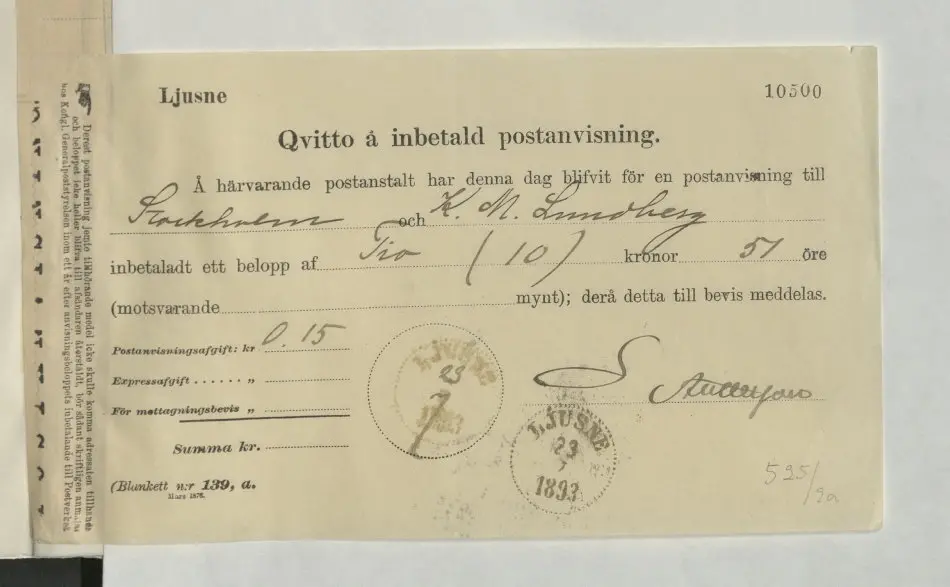 Ljusne
10500
Qvitto å inbetald postanvisning.
Å härvarande postanstalt har denna dag blifvit för en postanvisning till
Stockholm och K. M. Lundberg
inbetaladt ett belopp af Tio (10) kronor 51 öre
(motsvarande mynt); derå detta till bevis meddelas.
Postanvisningsafgift: kr 0.15
Expressafgift . . . . . . „
För mottagningsbevis „
Summa kr.
(Blankett n:r 139, a.
Mars 1878.
LJUSNE
23
7
1893
S Andersson
LJUSNE
23
7
1893
525/
Derest postanvisning jemte tillhörande medel icke skulle komma adressaten tillhanda
och beloppet icke heller blifva till afsändaren återstäldt, bör sådant skriftligen anmälas
hos Kongl. Generalpoststyrelsen inom ett år efter anvisningsbeloppets inbetalande till Postverket